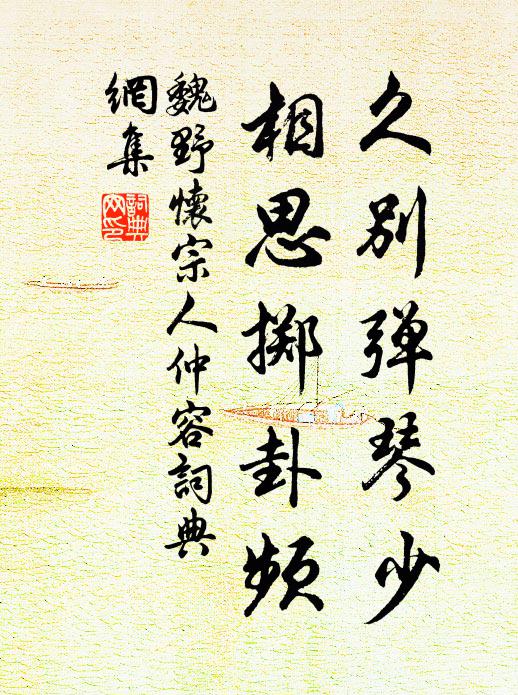 久别弹琴少
相思掷卦频
魏野懷宗人仲容詞典
網集
詞典
网印